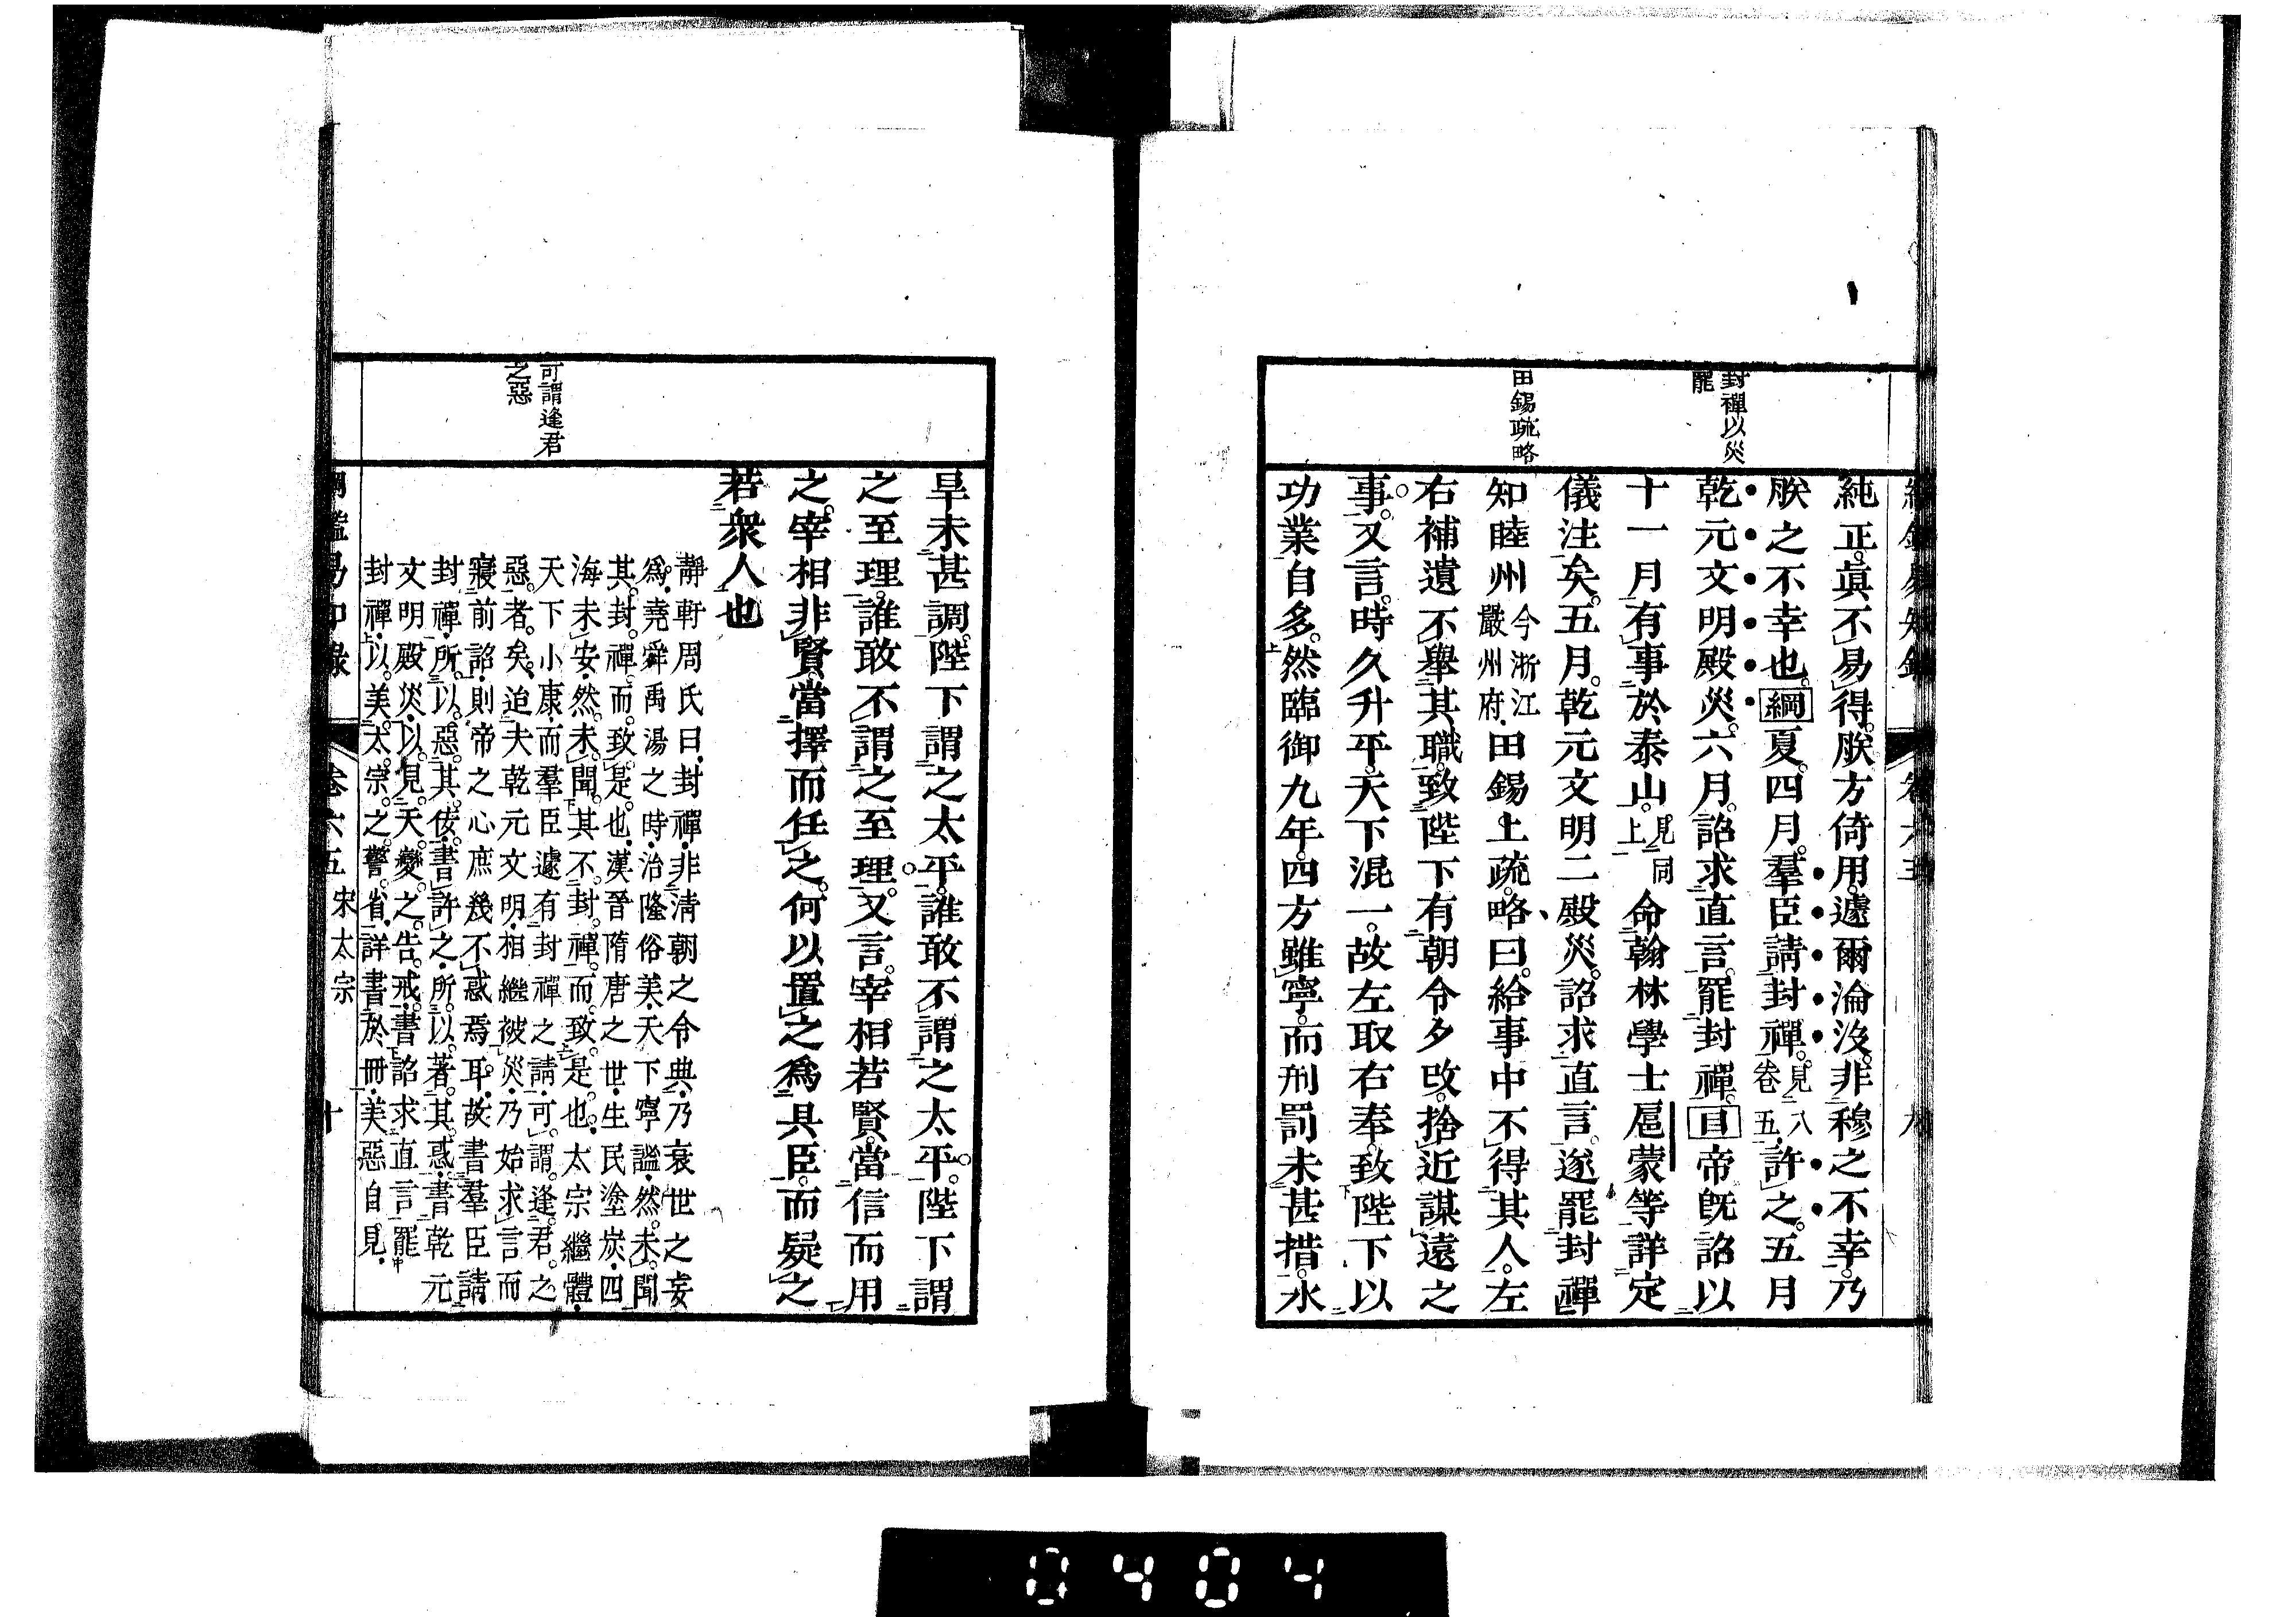 綱鑑易知錄 卷六五 九
封禪以災
罷
田錫疏略
純正。眞不易得。朕方倚用。遽爾淪沒。非穆之不幸。乃
朕之不幸也。綱夏。四月。羣臣請封禪。見八卷五。許之。五月
乾元文明殿災。六月。詔求直言。罷封禪。目帝既詔以
十一月有事於泰山。見同上 命翰林學士扈蒙等詳定
儀注矣。五月。乾元文明二殿災。詔求直言。遂罷封禪
知睦州今浙江嚴州府。田錫上疏。略曰。給事中不得其人。左
右補遺不舉其職。致陛下有朝令夕改。捨近謀遠之
事。又言。時久升平。天下混一。故左取右奉。致陛下以
功業自多。然臨御九年。四方雖寧。而刑罰未甚措。水
可謂逢君
之惡
旱未甚調。陛下謂之太平。誰敢不謂之太平。陛下謂
之至理。誰敢不謂之至理。又言。宰相若賢。當信而用
之。宰相非賢。當擇而任之。何以置之爲具臣。而疑之
若衆人也
靜軒周氏曰。封禪。非淸朝之令典。乃衰世之妄
爲。堯舜禹湯之時。治隆俗美。天下寧謐。然未聞
其封禪。而致是也。漢晉隋唐之世。生民塗炭。四
海未安。然未聞其不封禪。而致是也。太宗繼體。
天下小康。而羣臣遽有封禪之請。可謂逢君之
惡者矣。迨夫乾元文明。相繼被災。乃始求言而
寢前詔。則帝之心庶幾不惑焉耳。故書羣臣請
封禪。所以惡其佞。書許之。所以著其惑。書乾元
文明殿災。以見天變之告戒。書詔求直言罷
封禪。以美太宗之警省。詳書於冊。美惡自見。
綱鑑易知錄 卷六五 宋太宗 十
0404